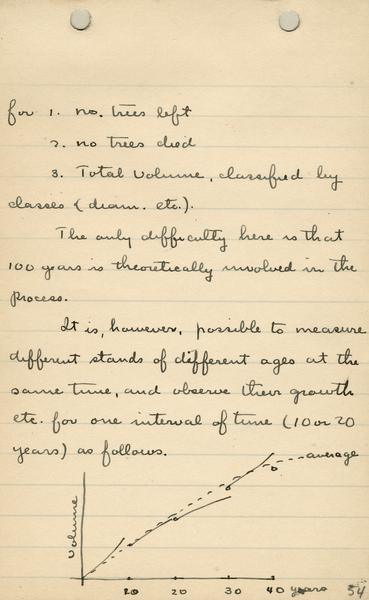 for 1. no. trees left
2. no trees died
3. Total volume, classified by
classes (diam. etc.).
The only difficulty here is that
100 years is theoretically involved in the
process.
It is, however, possible to measure
different stands of different ages at the
same time, and observe their growth
etc. for one interval of time (10 or 20
years) as follows.
average
volume
10 20 30 40 years
54